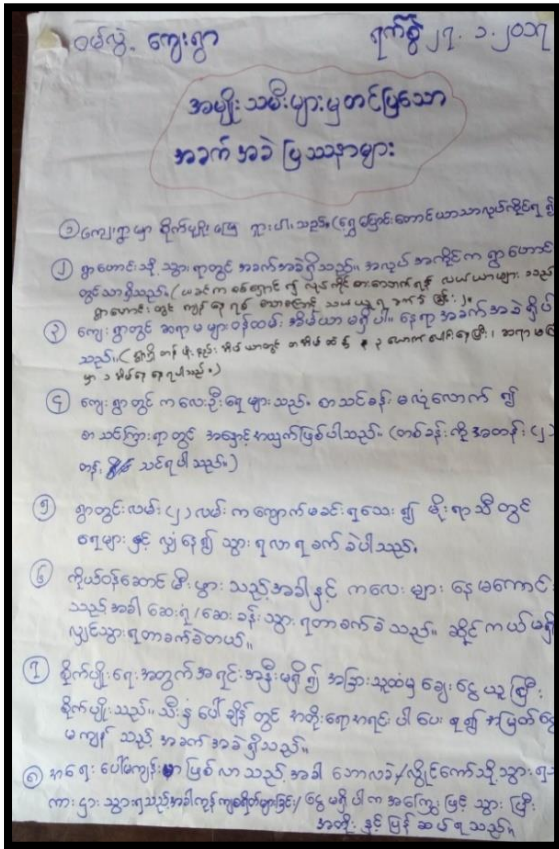 ဝမ်လွဲ့ ကျေးရွာ ရက်စွဲ ၂၇.၁.၂၀၁၇
အမျိုးသမီးများမှတင်ပြသော
အခက်အခဲ ပြဿနာများ
① ကျေးရွာမှာ စိုက်ပျိုးမြေ ရှားပါးသည်။ (ရွှေ့ပြောင်းတောင်ယာသာလုပ်ကိုင်ရ၍
② ရွာတောင်းသို့ သွားရာတွင် အခက်အခဲရှိသည်။ အလုပ်အကိုင်က ရွာဟောင်း
တွင်သာရှိသည်။ (ယခင်က စစ်ရှောင်၍ လယ်ယာများ
ရွာဟောင်းတွင် ကျန်နေရစ်
③ ကျေးရွာတွင် ဆရာမများဝန်ထမ်း အိမ်ယာမရှိပါ။ နေရာအခက်အခဲရှိပါ
သည်။
မှာ ၁ အိမ် နေရပါသည်။)
④ ကျေးရွာတွင် ကလေးဦးရေများသည်။ စာသင်ခန်း မလုံလောက်၍
စာသင်ကြားရာတွင် အနှောင့်အယှက်ဖြစ်ပါသည်။ (တစ်ခန်းကိုအတန်း (၂)
တန်း သင်ရပါသည်။)
⑤ ရွာတွင်းလမ်း (၂) လမ်းကကျောက်မခင်းရသေး၍ မိုးရာသီတွင်
ရေများနှင့် လျှံနေ၍ သွားရလာရခက်ခဲပါသည်။
⑥ ကိုယ်ဝန်ဆောင် မီးဖွားသည့်အခါနှင့် ကလေးများ နေမကောင်း
သည့်အခါ ဆေးရုံ/ဆေးခန်းသွားရတာခက်ခဲသည်။ ဆိုင်ကယ်မရှိ
လျှင်သွားရတာခက်ခဲတယ်။
⑦ စိုက်ပျိုးရေးအတွက်အရင်းအနှီးမရှိ၍ အခြားသူထံမှ ချေးငွေယူပြီး
စိုက်ပျိုးသည်။ သီးနှံပေါ်ချိန်တွင် အတိုးရောအရင်းပါပေးရ၍ အမြတ်ငွေ
မကျန်သည့် အခက်အခဲရှိသည်။
⑧ အရေးပေါ်ကျန်းမာဖြစ်လာသည့်အခါ ဘောလခဲ/လွိုင်ကော်သို့သွားရ
ကားငှားသွားရသည့်အခါကုန်ကျစရိတ်များခြင်း၊ ငွေမရှိပါကအကြွေးဖြင့်သွားပြီး
အတိုးနှင့်ပြန်ဆပ်ရသည်။